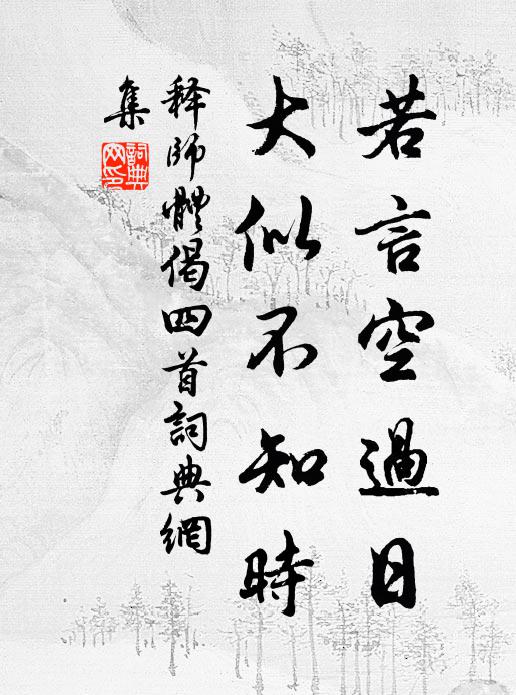 若言空過日
大似不知時
釋師體偈四首詞典網
集
詞典網印